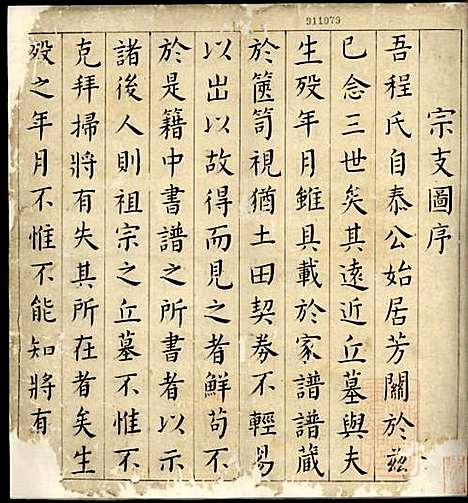 911979
宗支圖序
吾程氏自泰公始居芳關於茲
已念三世矣其遠近丘墓與夫
生歿年月雖具載於家譜譜藏
於篋笥視猶土田契券不輕易
以出以故得而見之者鮮茍不
於是籍中書譜之所書者以示
諸後人則祖宗之丘墓不惟不
克拜掃將有失其所在者矣生
歿之年月不惟不能知將有